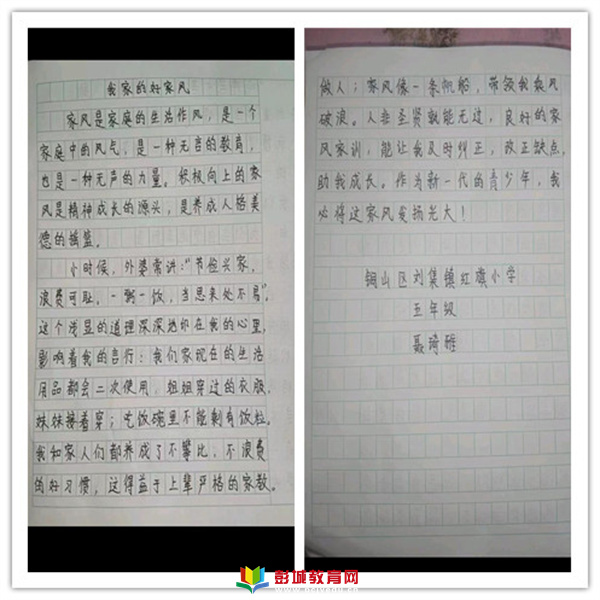 我家的好家风
家风是家庭的生活作风，是一个
家庭中的风气，是一种无言的教育，
也是一种无声的力量。积极向上的家
风是精神成长的源头，是养成人格美
德的摇篮。
小时候，外婆常讲："节俭兴家，
浪费可耻。一粥一饭，当思来处不易"。
这个浅显的道理深深地印在我的心里，
影响着我的言行：我们家现在的生活
用品都会二次使用，姐姐穿过的衣服，
妹妹接着穿；吃饭碗里不能剩有饭粒。
我和家人们都养成了不攀比，不浪费
的好习惯，这得益于上辈严格的家教。
做人；家风像一条帆船，带领我乘风
破浪。人非圣贤孰能无过，良好的家
风家训，能让我及时纠正，改正缺点，
助我成长。作为新一代的青少年，我
必将这家风发扬光大！
铜山区刘集镇红旗小学
五年级
聂琦雅
彭城教育网